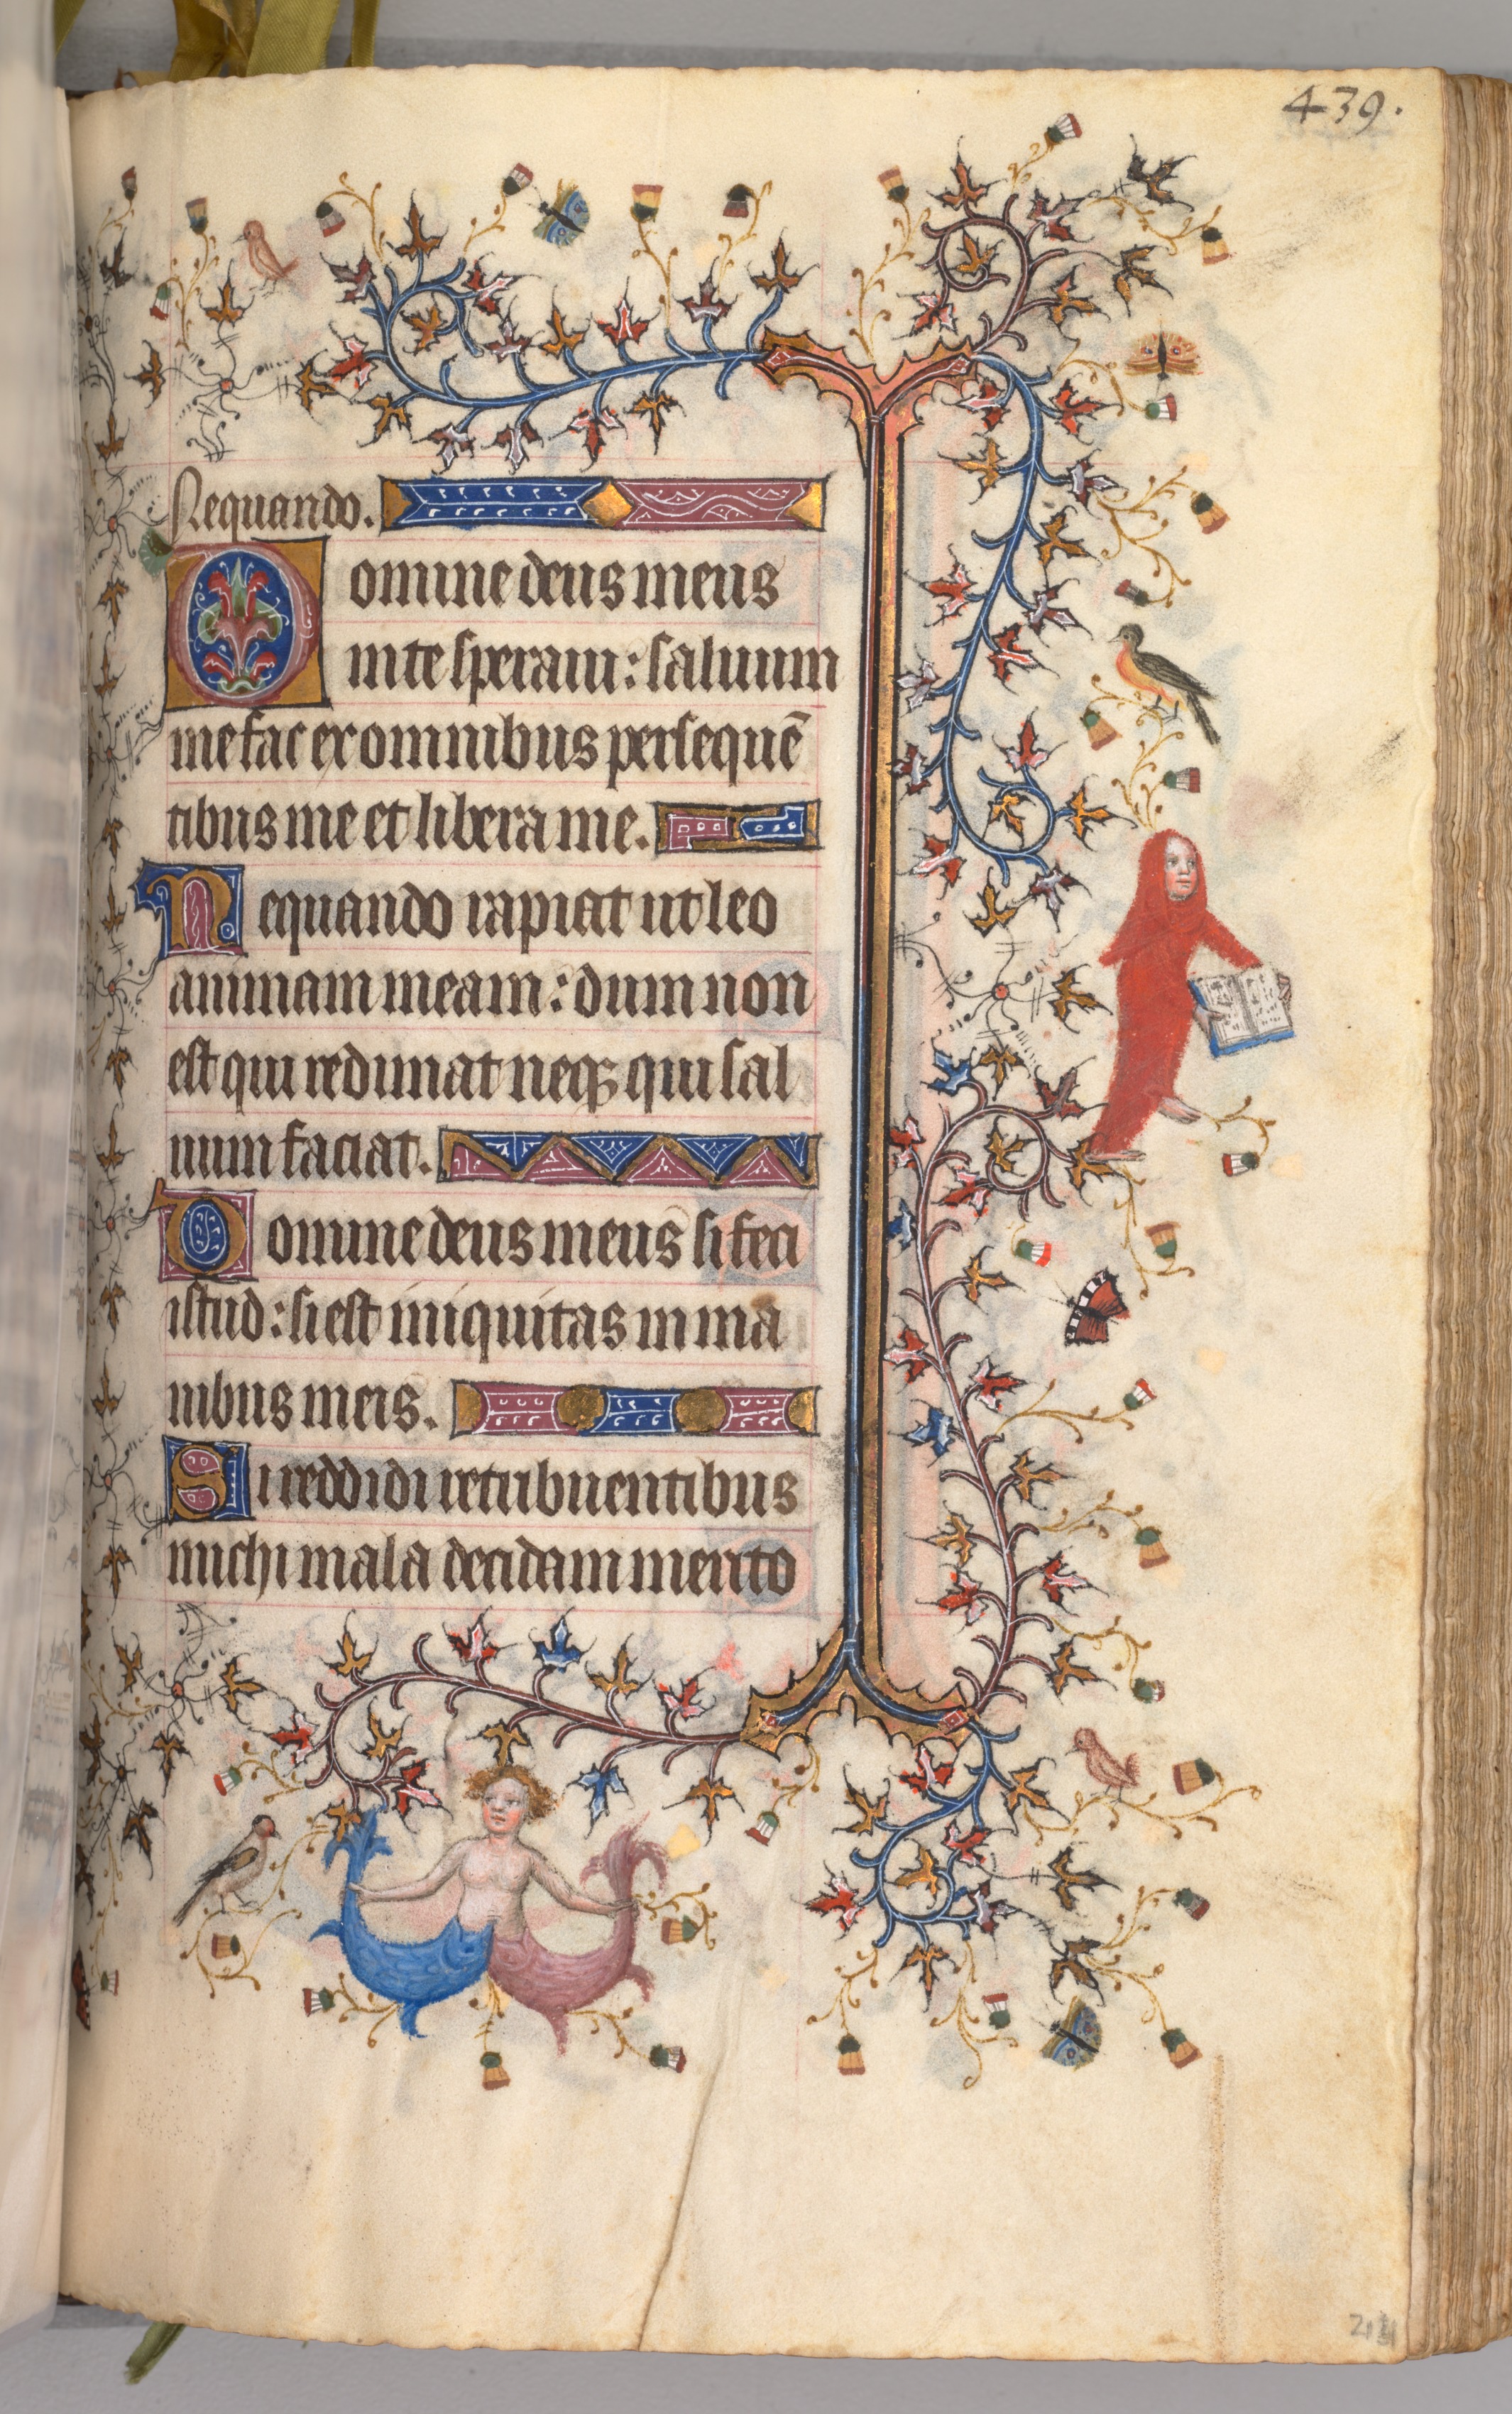 439.
Nequando.
Domine deus meus
in te speravi : salvum
me fac ex omnibus persequē
tibus me et libera me.
Nequando rapiat ut leo
animam meam : dum non
est qui redimat neqꝫ qui sal
vum faciat.
Domine deus meus si feci
istud : si est iniquitas in ma
nibus meis.
Si reddidi retribuentibus
michi mala decidam merito